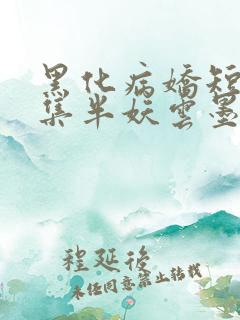 黑化病嬌短
集半妖雲墨
程延後
未经同意禁止转载